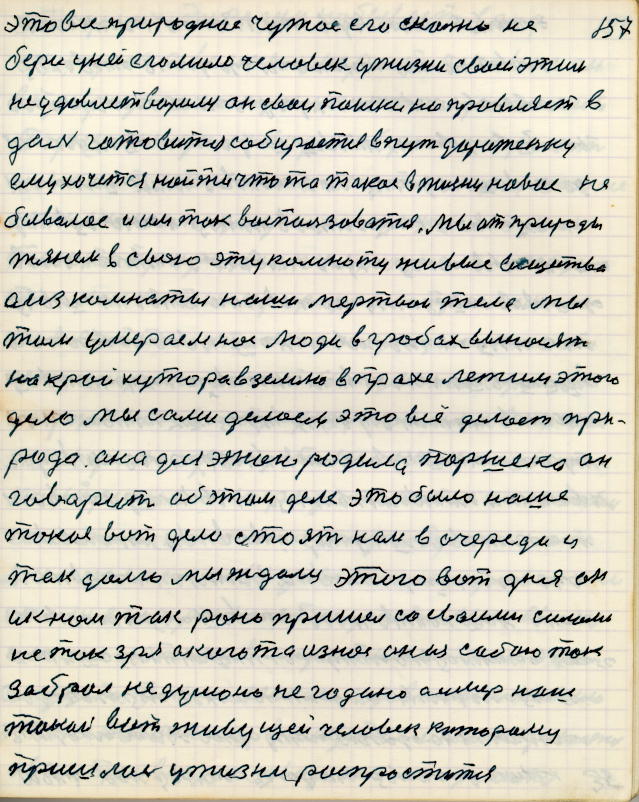 это все природное чужое его сказно не 157
бери у ней его мало человек у жизни своей этим
не удовлетворили он свои поиски направляет в
даль готовится собирается в путь дороженьку
ему хочется найти что та такое в жизни новое не
бывалое и им так воспользоватя, мы от природы
тянем в свою эту комноту живые вещества
а из комноты наши мертвои тела мы
там умераем нас люди в гробах выносят
на край хутора в землю в прахе лежим этого
дело мы сами делаем это всё делает при-
рода. она для этого родила паршека он
говарит об этом деле это было наше
токое вот дело стоят нам в очереди и
так долго мы ждали этого вот дня он
и к нам так рано пришел со своими силами
не так зря а кого та из нас он из собою так
забрал не думано не гадано а умер наш
такой вот живущей человек каторому
пришлось у жизни роспростится